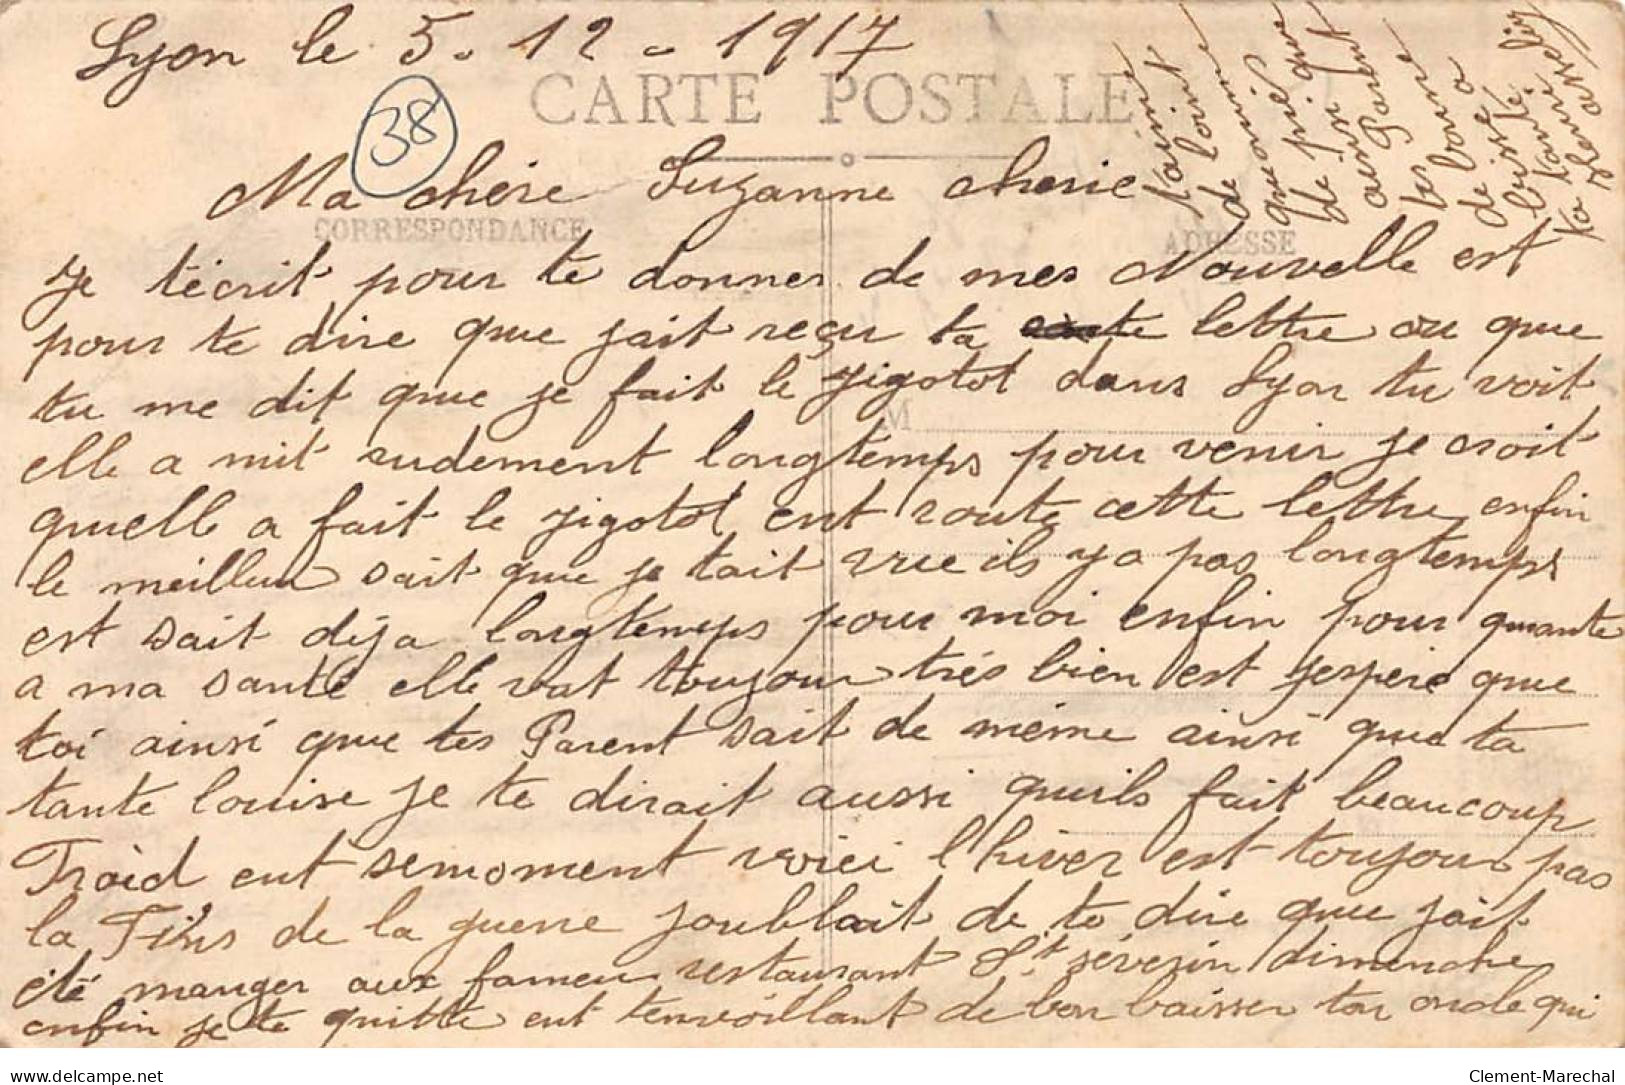 Lyon le 5-12-1917
38
CARTE POSTALE
Ma chére Suzanne cherie
CORRESPONDANCE
ADRESSE
Je técrit pour te donner de mes Nouvelle est
pour te dire que jait reçu ta lettre ou que
tu me dit que je fait le jigotot dans Lyon tu voit
elle a mit rudement longtemps pour venir je croit
quelle a fait le jigotot ent route cette lettre enfin
M
le meilleur sait que je tait vue ils y a pas longtemps
est sait déja longtemps pour moi enfin pour quante
a ma santé elle vat toujour trés bien est jespére que
toi ainsi que tes Parent sait de méme ainsi que ta
tante louise je te dirait aussi quils fait beaucoup
Froid ent semoment voici l'hiver est toujour pas
la Fins de la guerre joublait de te dire que jait
été manger aux fameu restaurant St séverin dimenche
enfin je te quitte ent tenvoillant de bon baisser ton oncle qui
t'aime
de loin
que
de pri que
ainsi
Parent
tes
de
ta tante
Clement-Marechal
delcampe.net